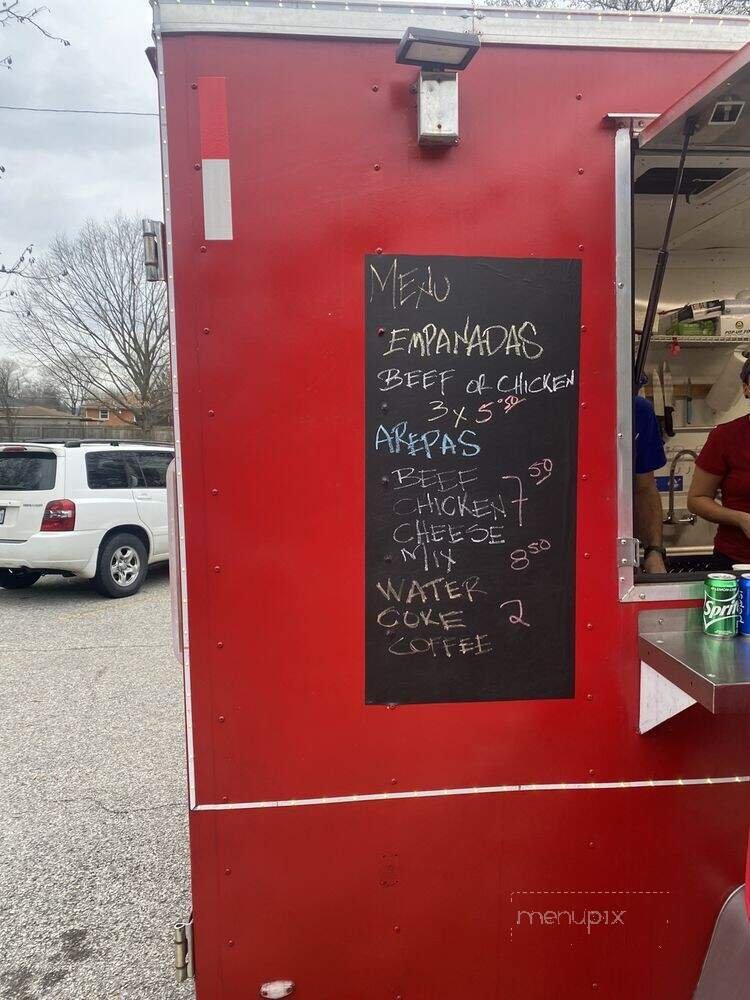 MENU
EMPANADAS
BEEF OR CHICKEN
3 x 5.50
AREPAS
BEEF
CHICKEN 7 50
CHEESE
MIX 8 50
WATER
COKE 2
COFFEE
Sprite
menupix